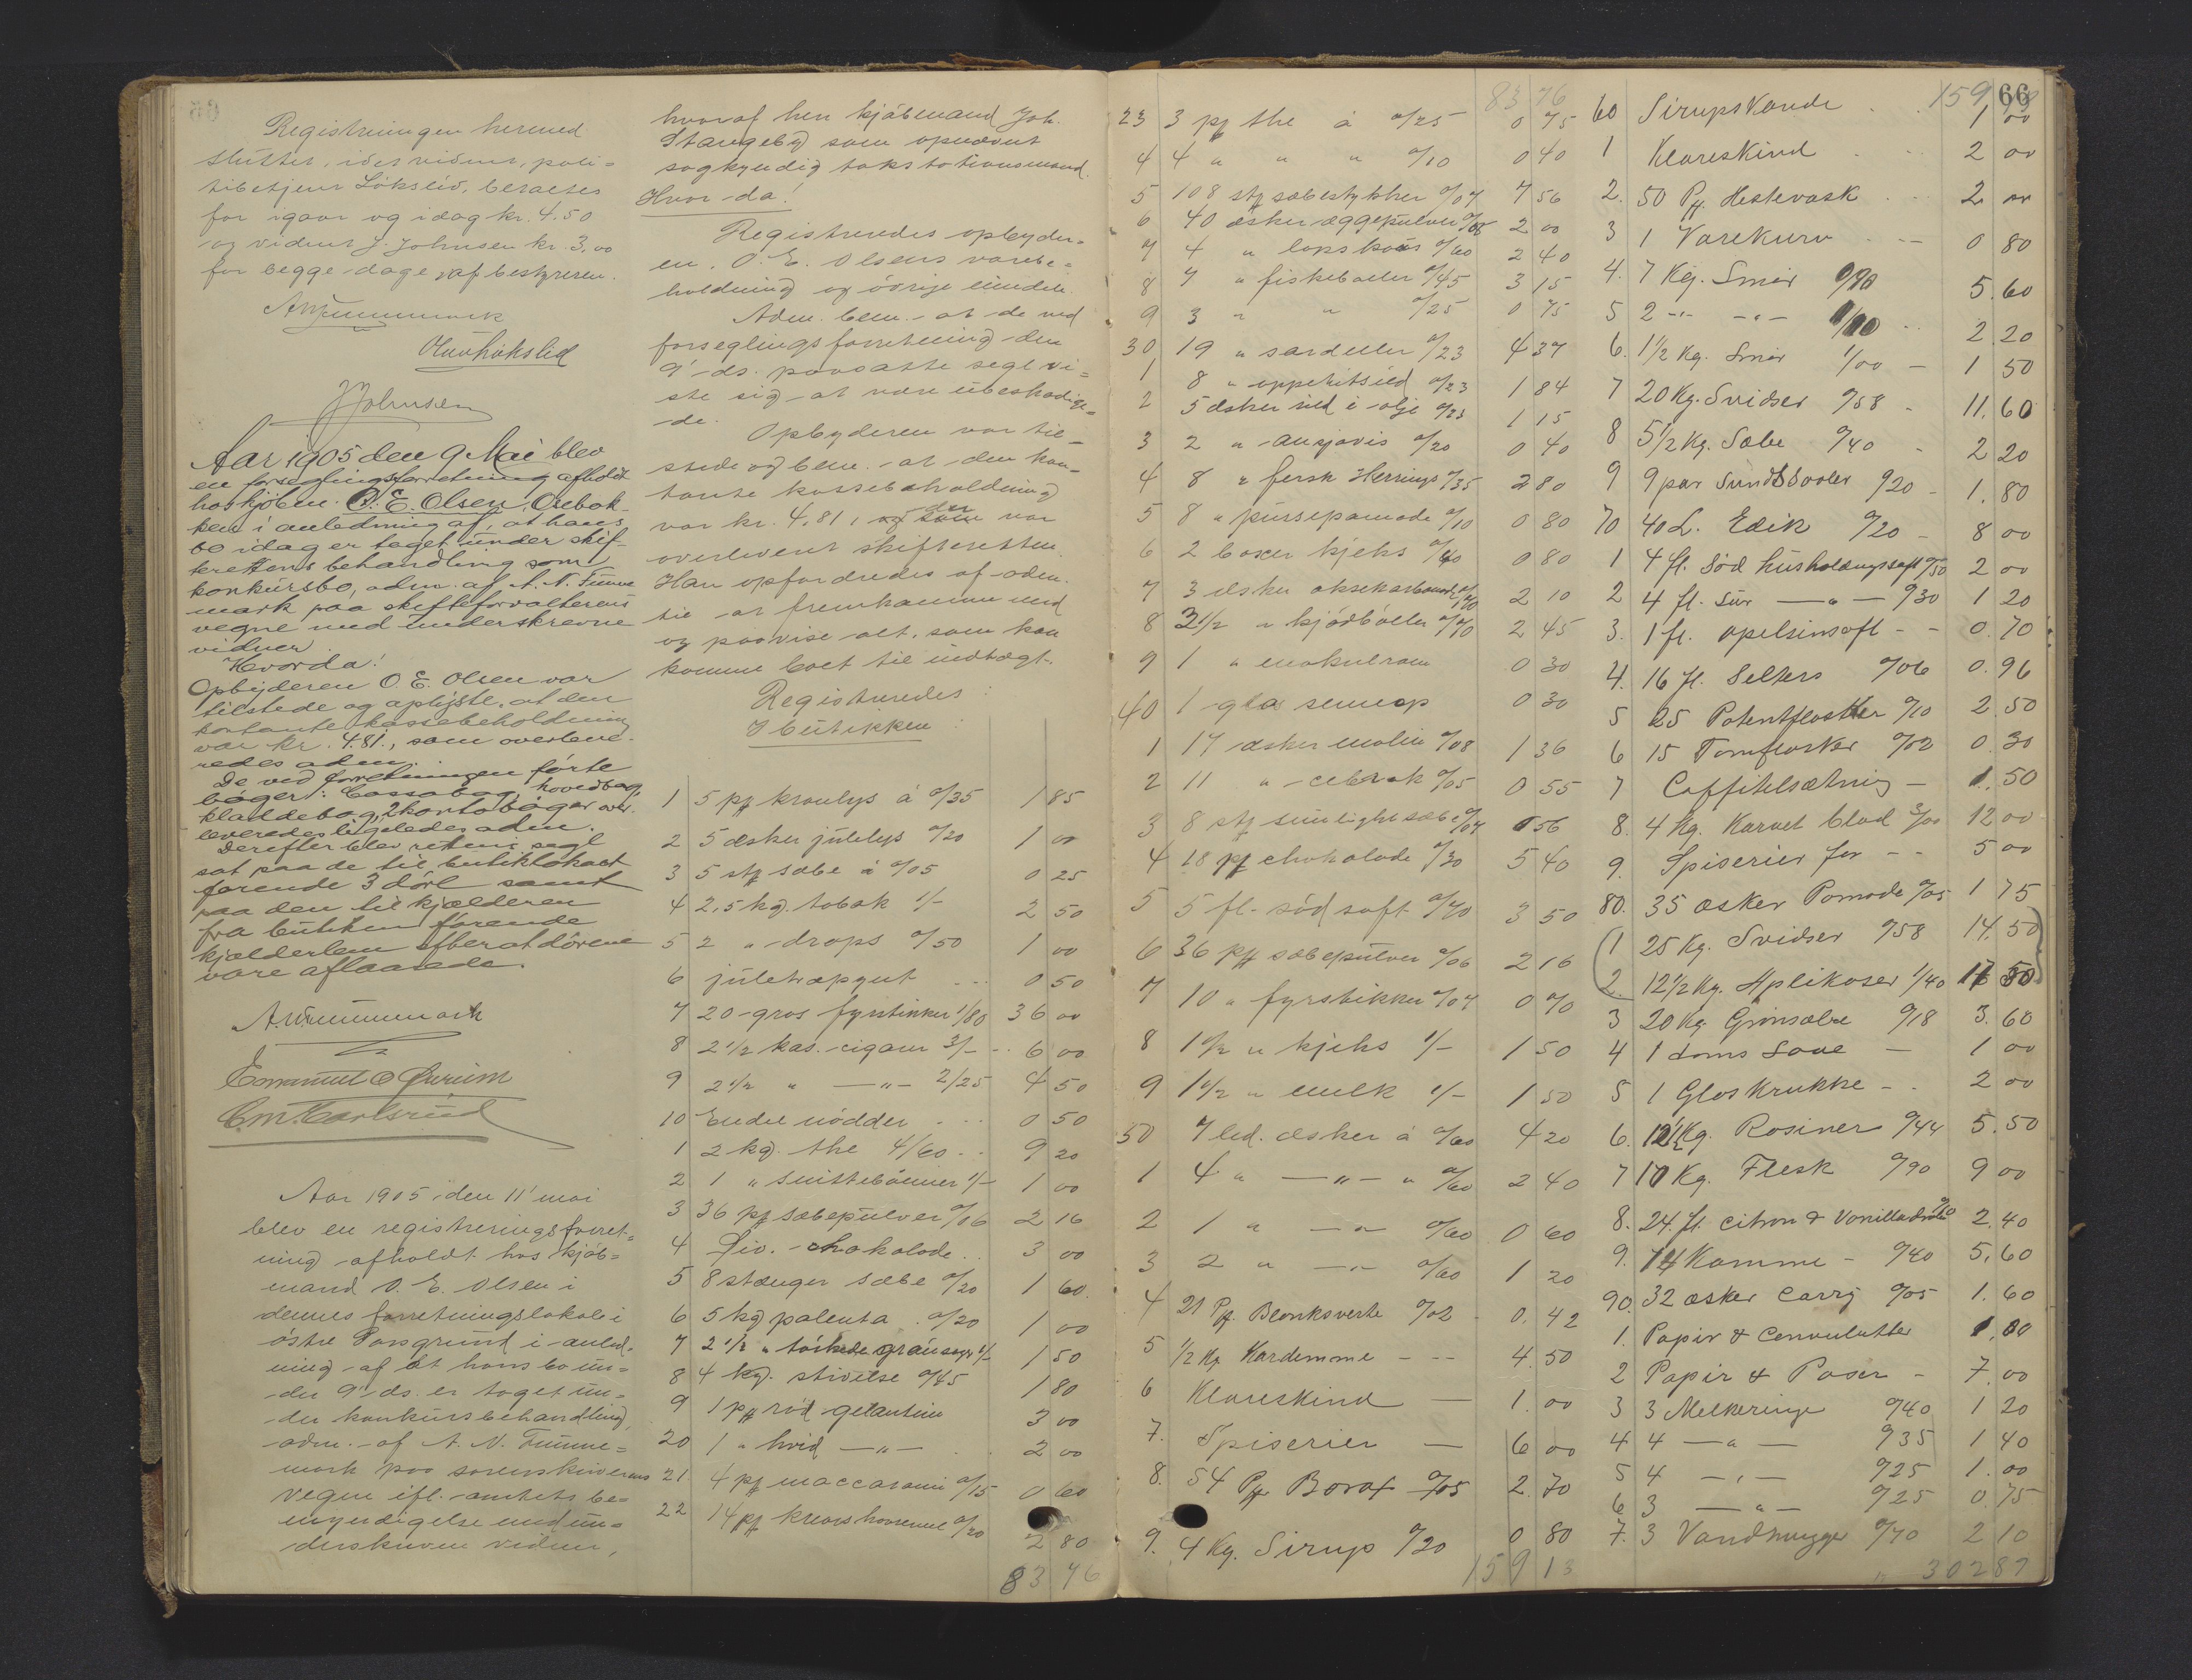 Registreringen hermed
slutter, idet vidnet, poli=
tibetjent Lökslid, betaltes
for igaar og idag kr. 4.50
og vidnet J. Johnsen kr. 3,00
for begge dage af bestyreren.
Olav Lökslid
J Johnsen
Aar 1905 den 9 Mai blev
en forseglingsforretning afholdt
hos kjöbm. O. E. Olsen, Osebak-
ken i anledning af, at hans
bo idag er taget under skif-
terettens behandling som
konkursbo, adm. af A. N. Tumme
mark paa skifteforvalterens
vegne med underskrevne
vidner.
Hvorda!
Opbyderen O. E. Olsen var
tilstede og oplyste, at den
kontante kassebeholdning
var kr. 4.81., som overleve-
redes adm.
De ved forretningen förte
böger: Cassabog, hovedbog,
kladdebog, 2 kontoböger over
leveredes ligeledes adm.
Derefter blev rettens segl
sat paa de til butiklokalet
förende 3 döre samt
paa den til kjælderen
fra butiken förende
kjælderlem efterat dörene
vare aflaasede.
Aar 1905 den 11' mai
blev en registreringsforret=
ning afholdt hos kjöb=
mand O. E. Olsen i
dennes forretningslokale i
östre Porsgrund i anled=
ning af at hans bo un=
der 9' ds. er taget un=
der konkursbehandling,
adm. af A. N. Tumme=
mark paa sorenskriverens
vegne ifl. amtets be=
myndigelse med un=
derskrevne vidner,
hvoraf herr kjöbmand Joh.
Stangeby som opnævnt
sagkyndig takstationsmand.
Hvor da!
Registreredes opbyder=
en O. E. Olsens varebe=
holdning og övrige eiendele.
Adm. bem. at de ved
forseglingsforretning den
9' ds. paasatte segl vi=
ste sig at være ubeskadige=
de.
Opbyderen var til=
stede og bem. at den kon=
tante kassebeholdning
var kr. 4.81, der var
overleveret skifteretten.
Han opfordredes af adm.
til at fremkomme med
og paavise alt, som kan
komme boet til indtægt.
Registreredes:
I butikken:
1 5 pk kronlys á 0/35 1 85
2 5 æsker julelys 0/20 1 00
3 5 stk sæbe á 0/05 0 25
4 2,5 kg. tobak 1/- 2 50
5 2 " drops 0/50 1 00
6 juletræpynt ... 0 50
7 20 gros fyrstikker 1/80 36 00
8 2 1/2 kas. cigarer 3/- .. 6 00
9 2 1/2 " —"— 2/25 4 50
10 Endel nödder ... 0 50
1 2 kg. the 4/60 .. 9 20
2 1 " snittebönner 1/- 1 00
3 36 pk sæbepulver 0/06 2 16
4 Div. chokolade .. 3 00
5 8 stænger sæbe 0/20 1 60
6 5 kg polenta . 0/20 1 00
7 2 1/2 " törkede grönsager 1/- 1 50
8 4 kg. stivelse 0/45 1 80
9 1 pk röd gelantine 3 00
20 1 " hvid —"— . 2 00
21 4 pk maccaroni 0/15 0 60
22 14 pk 0/20 2 80
83 76
83 76
23 3 pk the á 0/25 0 75
4 4 " " " 0/10 0 40
5 108 stk sæbestykker 0/07 7 56
6 40 æsker æggepulver 0/05 2 00
7 4 " lapskaus 0/60 2 40
8 7 " fiskeboller 0/45 3 15
9 3 " " 0/25 0 75
30 19 " sardeller 0/23 4 37
1 8 " appetitsild 0/23 1 84
2 5 æsker sild i olje 0/23 1 15
3 2 " ansjovis 0/20 0 40
4 8 " fersk Herrings 0/35 2 80
5 8 " pudsepomade 0/10 0 80
6 2 boxer kjeks 0/40 0 80
7 3 æsker oksekarbonade 0/70 2 10
8 3 1/2 " kjödboller 0/70 2 45
9 1 " makulram 0 30
40 1 glas sennep 0 30
1 17 æsker enolin 0/08 1 36
2 11 " cebrak 0/05 0 55
3 8 stk sunlightsæbe 0/07 0 56
4 18 pk chokolade 0/30 5 40
5 5 fl. söd saft 0/70 3 50
6 36 pk sæbepulver 0/06 2 16
7 10 " fyrstikker 0/07 0 70
8 1 1/2 " kjeks 1/- 1 50
9 1 1/2 " melk 1/- 1 50
50 7 led. æsker á 0/60 4 20
1 4 " —"— " 0/60 2 40
2 1 " —"— 0/60 0 60
3 2 " —"— 0/60 1 20
4 21 Pk. Blanksverte 0/02 - 0. 42
5 1/2 Kg Kardemme - -- 4. 50
6 Klareskind — 1. 00
7. Spiserier — 6 00
8. 54 Pk Borax 0/05 2. 70
9. 4 Kg. Sirup 0/20 0 80
159 13
159 66
60 Sirupskande 1 00
1 Klareskind 2 00
2. 50 Pk. Hestevask 2. 00
3 1 Varekurv 0 80
4. 7 Kg. Smör 0/80 5.60
5 2 -"- -"- 1/10 .. 2.20
6. 1 1/2 Kg. Smör 1/00 - 1 50
7 20 Kg. Svidser 0/58 - 11.60
8 5 1/2 Kg. Sæbe 0/40 - 2 20
9 9 par 0/20 - 1. 80
70 40 L. Edik 0/20 - 8 00
1 4 fl. Söd husholdningssaft 0/50 2 00
2 4 fl. Sur —"— 0/30 1 20
3. 1 fl. apelsinsaft - - 0.70
4. 16 fl. Selters 0/06 0.96
5 25 Patentflasker 0/10 2.50
6 15 Tomflasker 0/02 0.30
7 Caffitilsætning - 1.50
8. 4 Kg. Karvet blad 3/00 12 00
9. Spiserier for - - 5 00
80. 35 æsker Pomade 0/05 1 75
1 25 Kg. Svidser 0/58 14.50
2. 12 1/2 Kg. Aplikoser 1/40 17 50
3 20 Kg. Grönsæbe 0/18 3.60
4 1 — 1 00
5 1 Glaskrukke - . 2 00
6. 12 1/2 Kg. Rosiner 0/44 5.50
7 10 Kg. Flesk 0/90 9 00
8. 24. fl. Citron & 0/10 2.40
9. 14 Kamme - 0/40 5.60
90. 32 æsker Carry 0/05 1.60
1. Papir & Convulutter 1.00
2 Papir & Poser - 7.00
3 3 Melkeringe 0/40 1 20
4 4 —"— 0/35 1 40
5 4 —"— 0/25 1.00
6 3 —"— 0/25 0.75
7. 3 Vandmugger 0/70 2 10
302 87